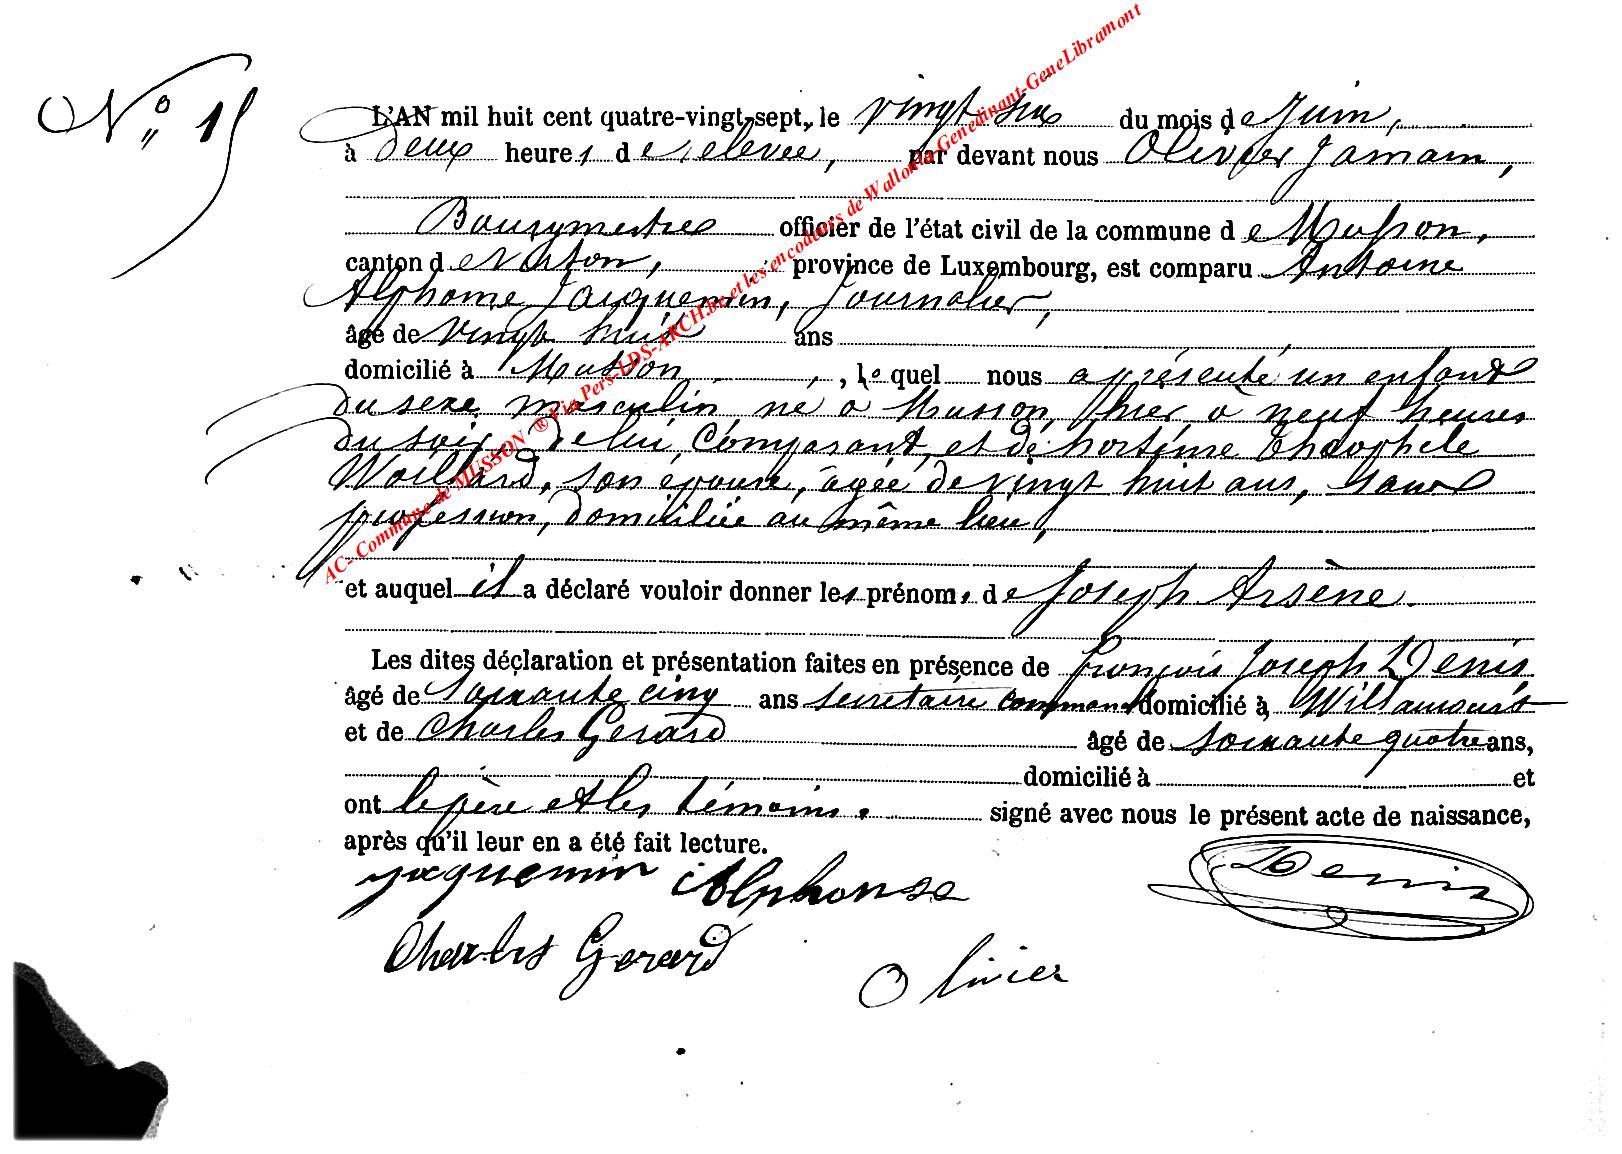 N° 15
L'AN mil huit cent quatre-vingt-sept, le vingt six du mois de Juin,
à Deux heures de relevée, par devant nous Olivier Jamain,
Bourgmestre officier de l'état civil de la commune de Musson,
canton de Virton, province de Luxembourg, est comparu Antoine
Alphonse Jacquemin, Journalier,
âgé de vingt huit ans
domicilié à Musson, lequel nous a présenté un enfant
du sexe masculin né à Musson, hier à neuf heures
du soir, de lui, Comparant, et de Hortense Théophile
son épouse, âgée de vingt huit ans, sans
profession, domiciliée au même lieu,
et auquel il a déclaré vouloir donner les prénoms de Joseph Arsène.
Les dites déclaration et présentation faites en présence de François Joseph Denis
âgé de soixante cinq ans secrétaire communal domicilié à Willancourt
et de Charles Gerard âgé de soixante quatre ans,
domicilié à et
ont le père et les témoins. signé avec nous le présent acte de naissance,
après qu'il leur en a été fait lecture.
Jacquemin Alphonse
Denis
Charles Gerard
Olivier
AC- Commune de MUSSON ® Via Pers-LDS-ARCH.be et les encodeurs de Wallonia-Genedinant-GeneLibramont